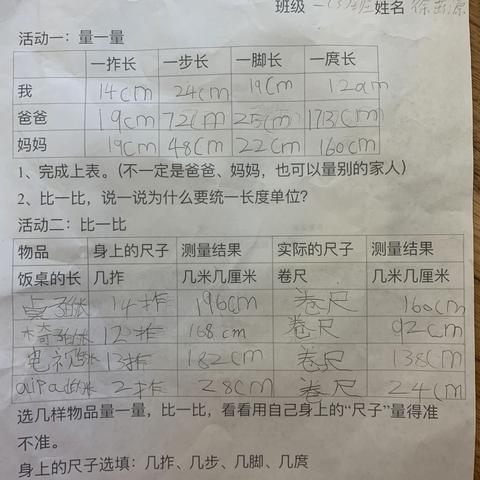 班级 一(3)班 姓名 徐
活动一：量一量
一拃长 一步长 一脚长 一庹长
我 14cm 24cm 19cm 120m
爸爸 19cm 72cm 25cm 173cm
妈妈 19cm 48cm 22cm 160cm
1、完成上表。(不一定是爸爸、妈妈，也可以量别的家人)
2、比一比，说一说为什么要统一长度单位?
活动二：比一比
物品 身上的尺子 测量结果 实际的尺子 测量结果
饭桌的长 几拃 几米几厘米 卷尺 几米几厘米
桌子的长 14拃 196cm 卷尺 160cm
椅子的长 12拃 168cm 卷尺 92cm
电视的长 13拃 182cm 卷尺 138cm
aipad的长 2拃 28cm 卷尺 24cm
选几样物品量一量，比一比，看看用自己身上的“尺子”量得准
不准。
身上的尺子选填：几拃、几步、几脚、几庹